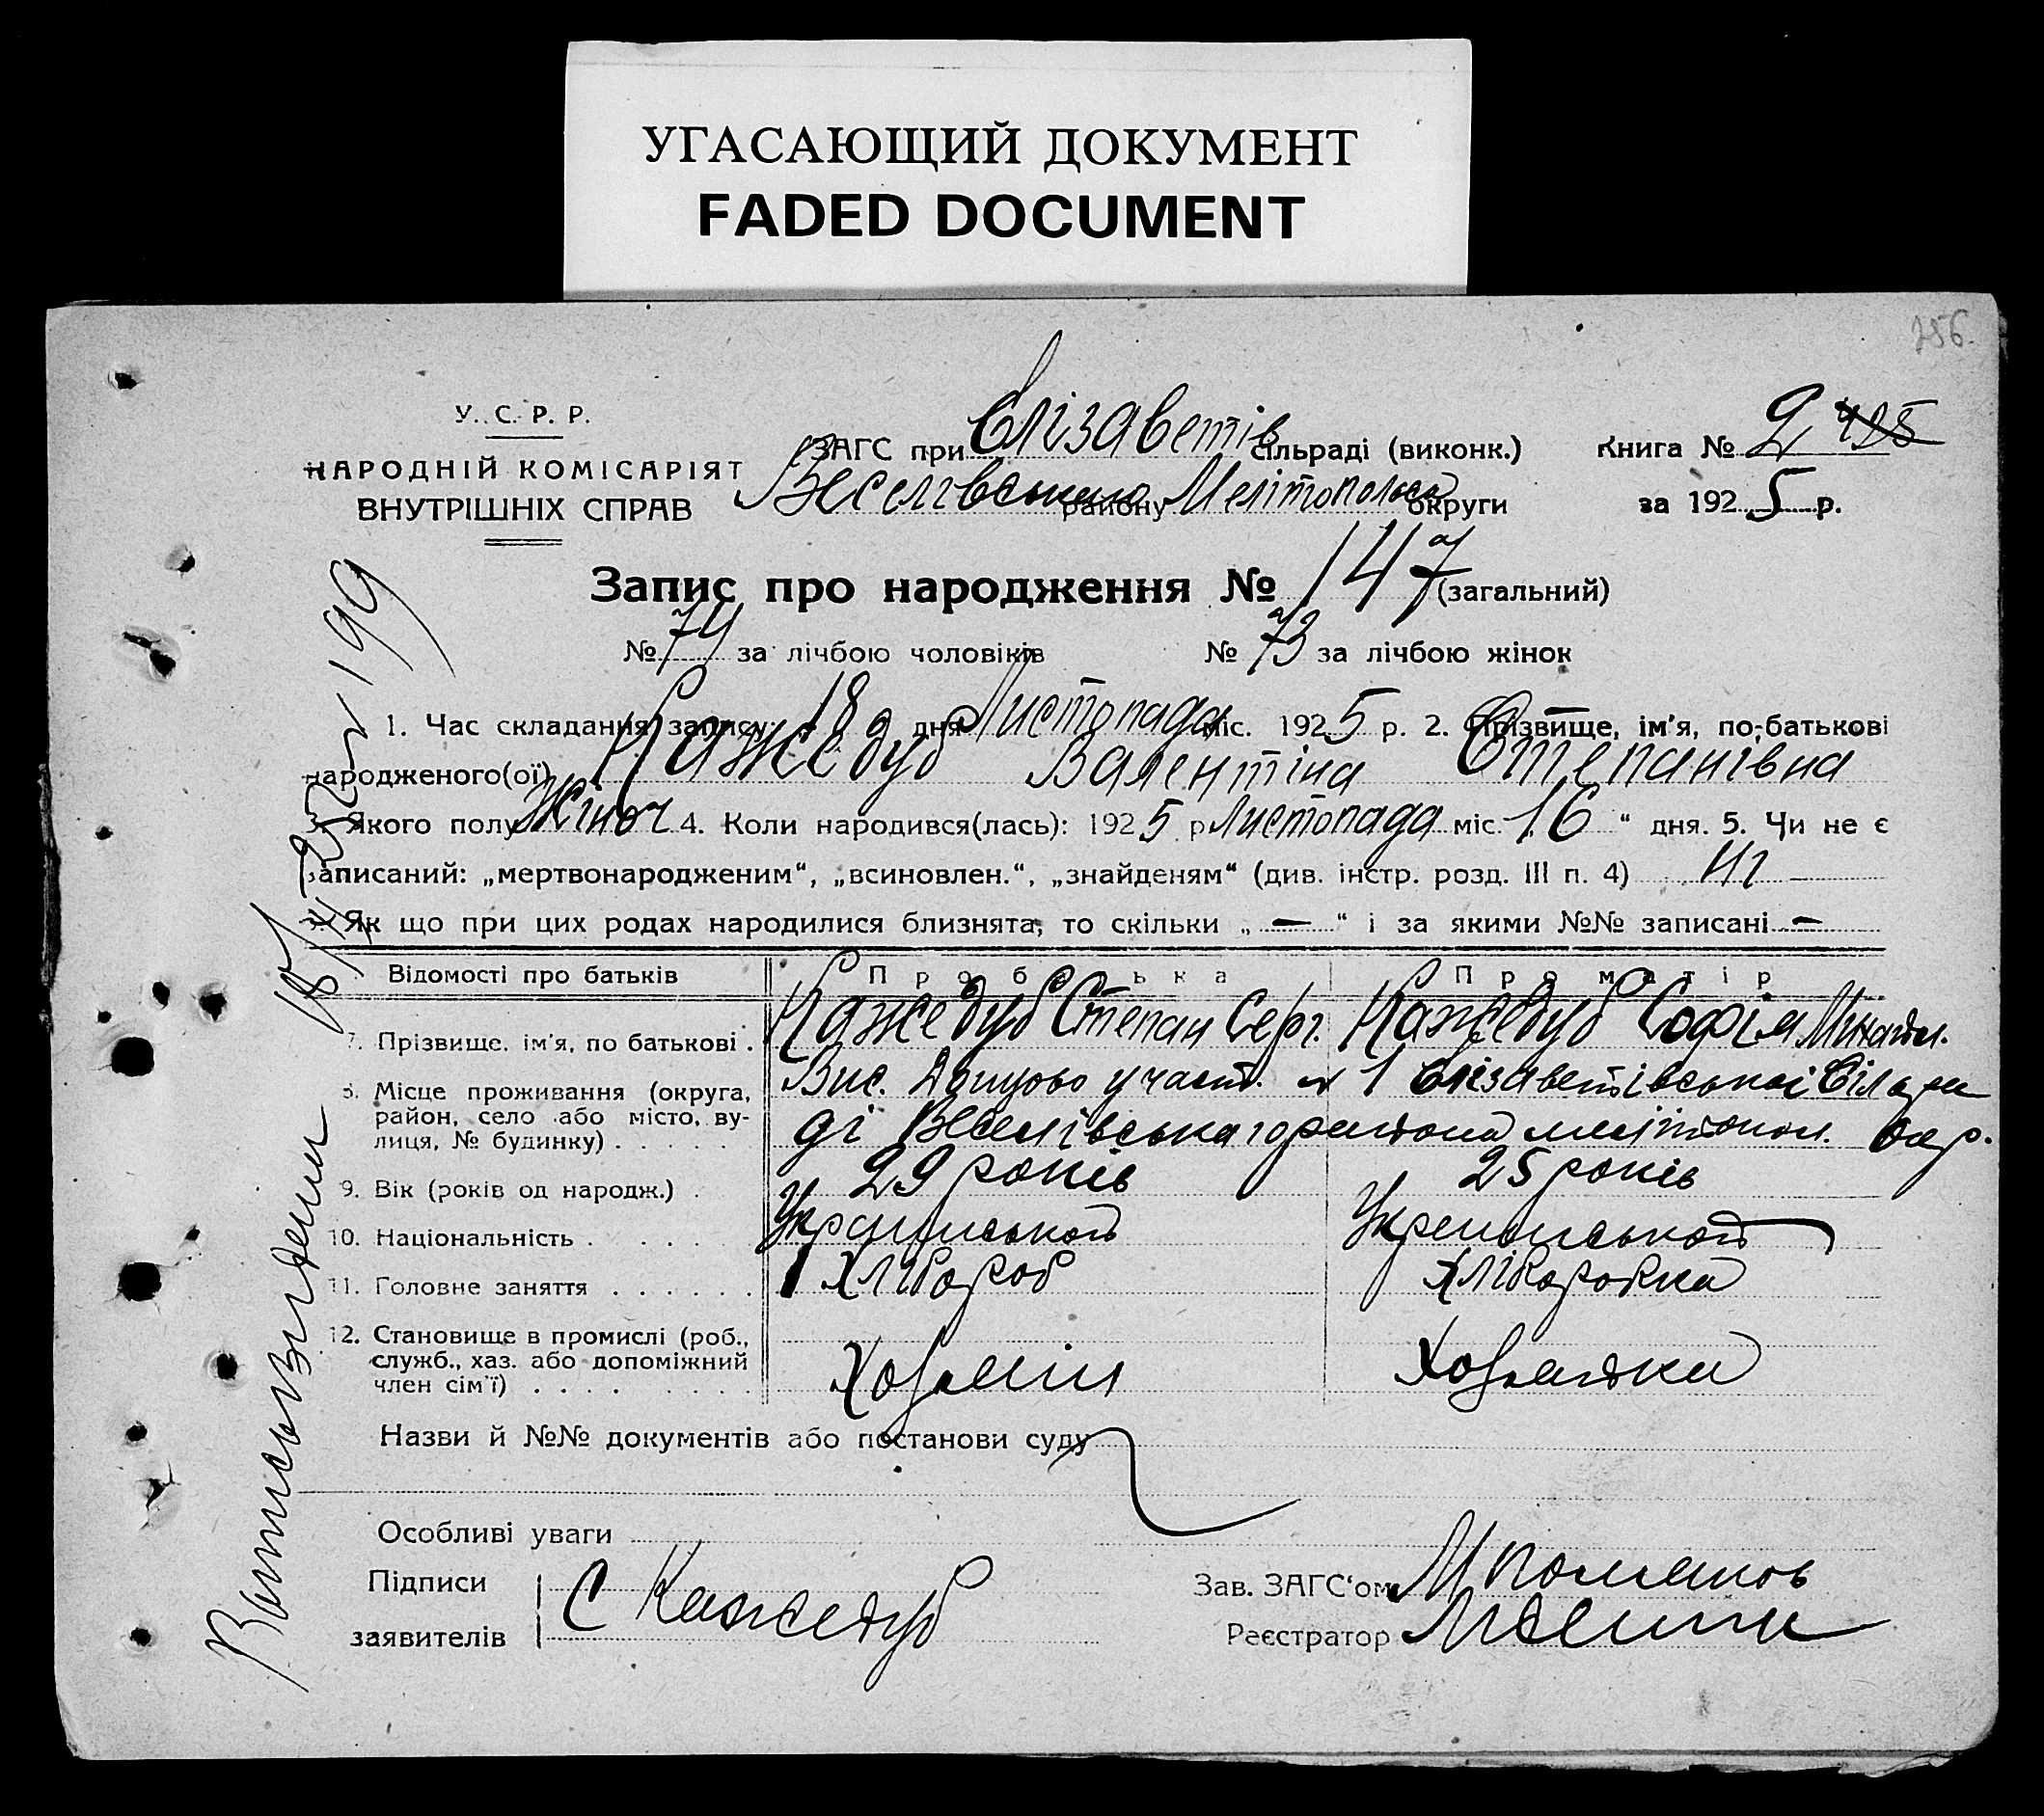 УГАСАЮЩИЙ ДОКУМЕНТ
FADED DOCUMENT
256.
У. С. Р. Р.
НАРОДНІЙ КОМІСАРІЯТ
ВНУТРІШНІХ СПРАВ
ЗАГС при Єлізаветів сільраді (виконк.)
Веселівського району Мелітопольськ округи
Книга № 2
за 1925 р.
Запис про народження № 147 (загальний)
№ 74 за лічбою чоловіків № 73 за лічбою жінок
1. Час складання запису: 18 дня Листопада міс. 1925 р. 2. Прізвище, ім'я, по-батькові
народженого(ої) Кажедуб Валентіна Степанівна
3. Якого полу Жіноч 4. Коли народився(лась): 1925 р Листопада міс. 16 “ дня. 5. Чи не є
записаний: „мертвонародженим“, „всиновлен.“, „знайденям“ (див. інстр. розд. III п. 4) Ні
Як що при цих родах народилися близнята, то скільки „ — “ і за якими №№ записані —
Відомості про батьків Про батька Про матір
7. Прізвище, ім'я, по батькові . Кажедуб Степан Серг. Кажедуб Софія
Місце проживання (округа, район, село або місто, вулиця, № будинку) . . . . . Вис. участ. № 1 Єлізаветівської Сілара
ді Веселівського района мелітопол. окр.
9. Вік (років од народж.) . 29 років 25 років
10. Національність . . . . . Українськой Українськой
11. Головне заняття . . . . . . Хлібороб Хліборобка
12. Становище в промислі (роб., служб., хаз. або допоміжний член сім'ї) . . . . . . . . . Хозяїн Хозяйка
Назви й №№ документів або постанови суду
Особливі уваги
Підписи
заявителів С Кажедуб
Зав. ЗАГС'ом
Реєстратор